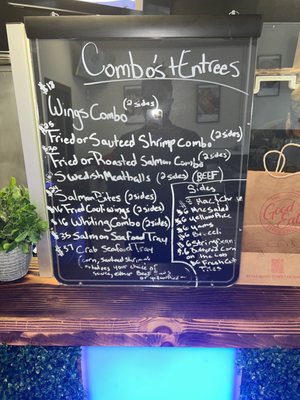 Combo's + Entrees
$18
Wings Combo (2 sides)
$25
Fried or Sauteed Shrimp Combo (2 sides)
$30
Fried or Roasted Salmon Combo (2 sides)
Swedish Meatballs (2 sides) (BEEF)
Salmon Bites (2 sides)
Fried Catwings (2 sides)
Whiting Combo (2 sides)
$35 Salmon Seafood Tray
$37 Crab Seafood Tray
(corn, sautéed shrimp
potatoes your choice of
sauce, either Beef
Sides
Mac Salad
Yellow Rice
$6 yams
$6 Broccoli
$6 String Beans
$6 Buttered Corn
on the cob
$6 Fresh Cut
Fries